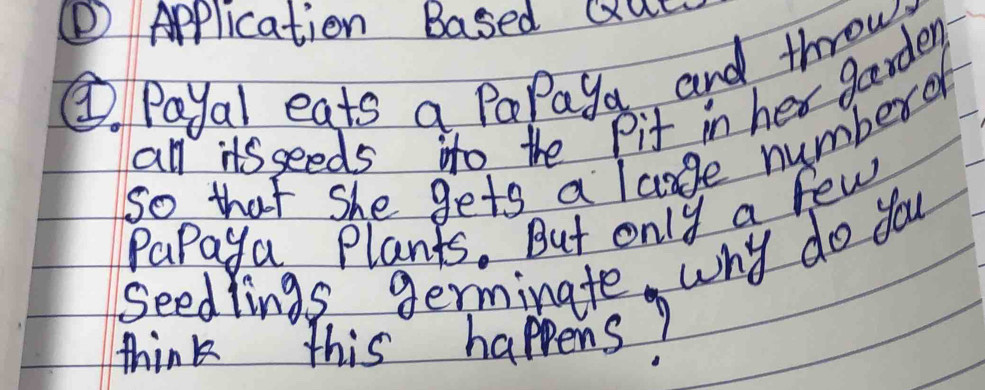 Ⓓ Application Based
①. Payal eats a Papaya and throws
all its seeds ito the Pit in her garden
so that she gets a large number of
Papaya Plants. But only a few
Seedlings germinate. Why do you
think this happens?